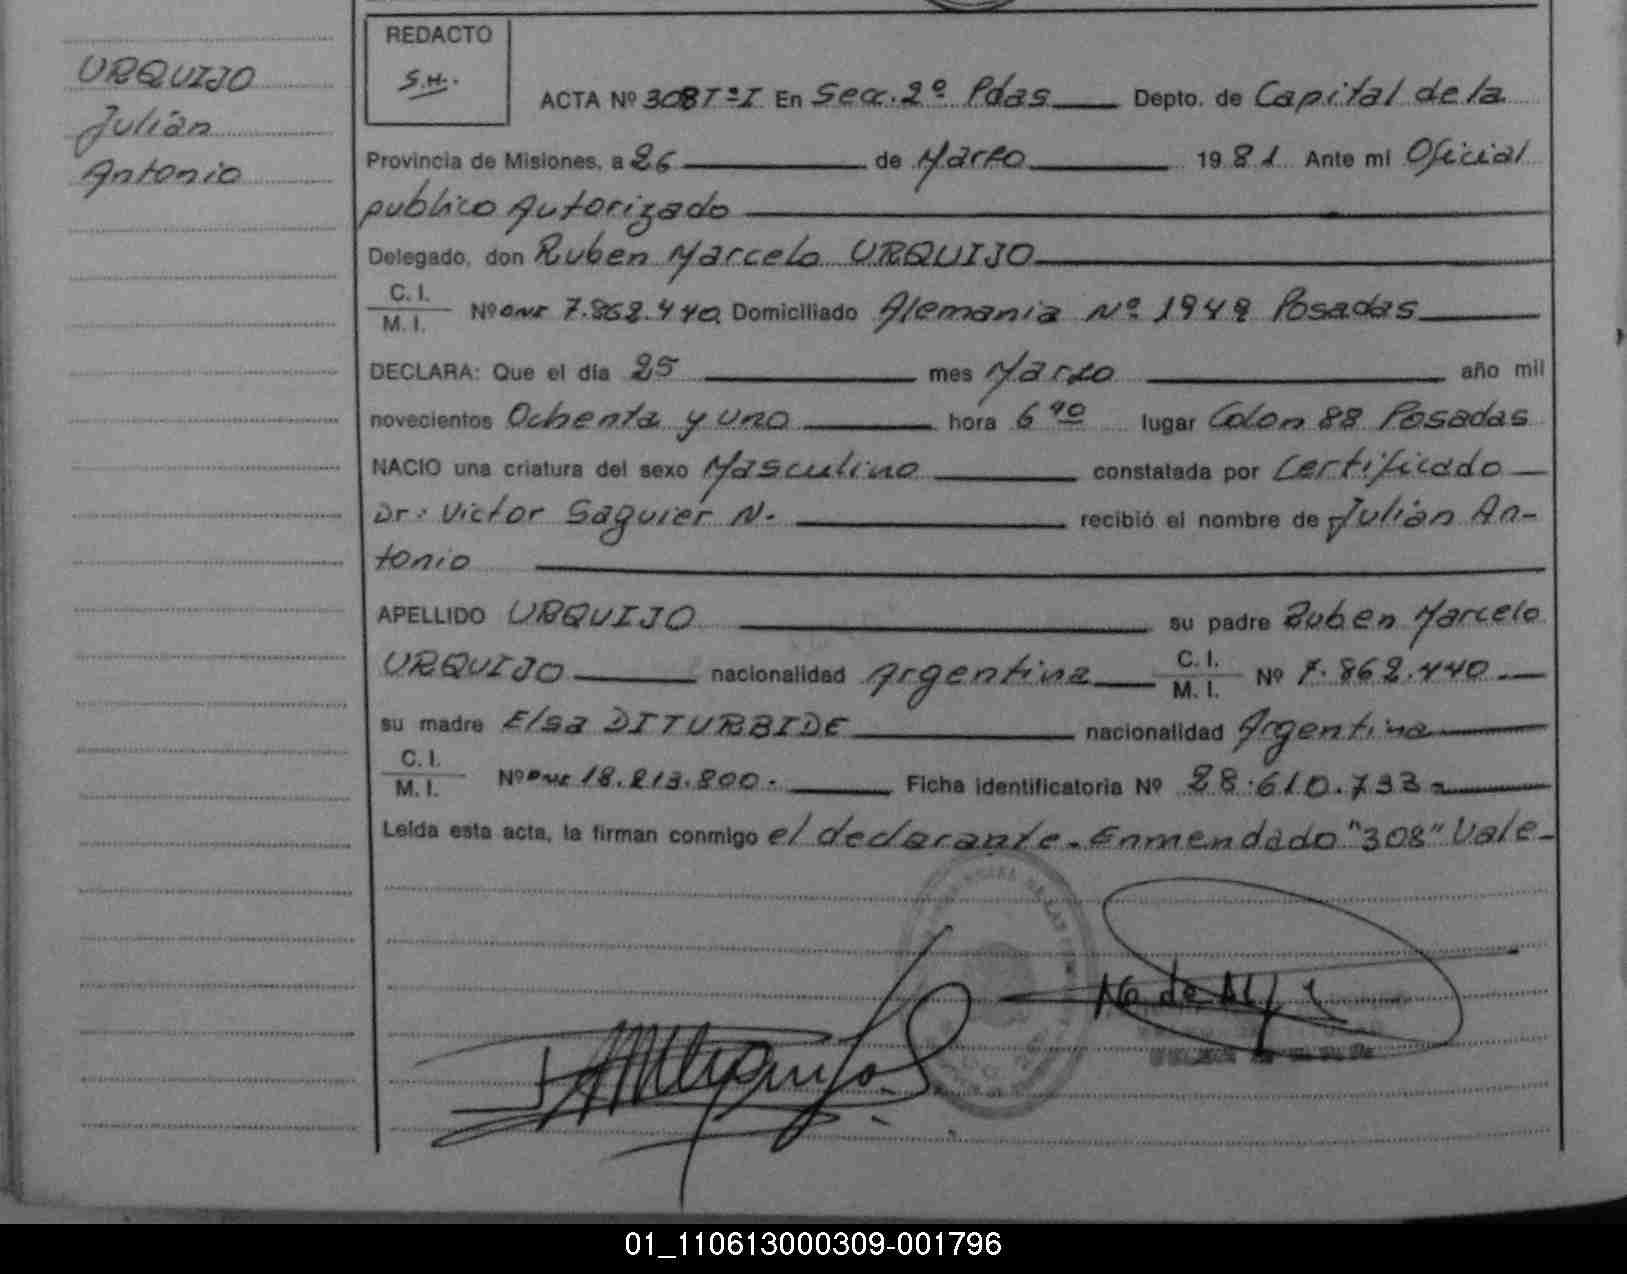 URQUIJO
Julián
Antonio
REDACTO
S.H.
ACTA Nº 308 Tº I En Secc. 2º Pdas Depto. de Capital de la
Provincia de Misiones, a 26 de Marzo 1981 Ante mi Oficial
publico Autorizado
Delegado, don Ruben Marcelo URQUIJO
C. I.
M. I.
Nº DNI 7.862.440 Domiciliado Alemania Nº 1949 Posadas
DECLARA: Que el día 25 mes Marzo año mil
novecientos Ochenta y uno hora 6 40 lugar Colon 88 Posadas
NACIO una criatura del sexo Masculino constatada por Certificado
Dr: Victor Saguier N. recibió el nombre de Julián An-
tonio
APELLIDO URQUIJO su padre Ruben Marcelo
URQUIJO nacionalidad Argentina C. I. M. I. Nº 7.862.440
su madre Elsa DITURBIDE nacionalidad Argentina
C. I.
M. I.
Nº DNI 18.213.800. Ficha identificatoria Nº 28.610.733
Leída esta acta, la firman conmigo el declarante. Enmendado "308" Vale-
01_110613000309-001796